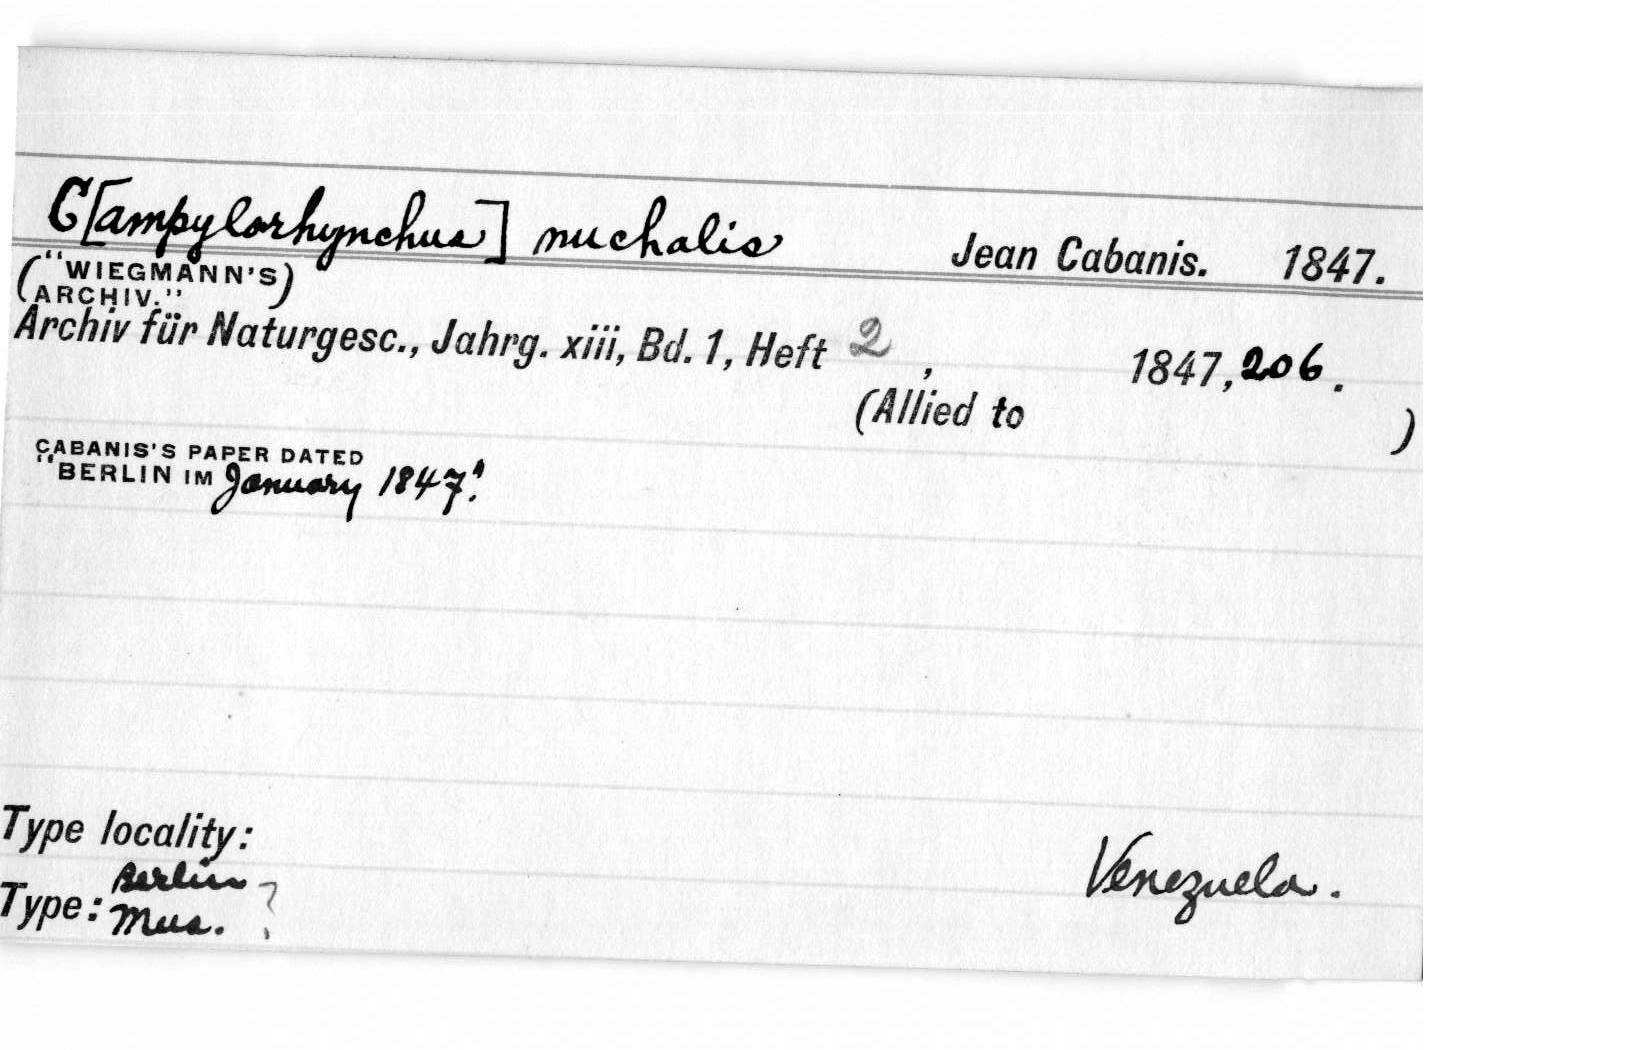 C[ampylorhynchus] nuchalis Jean Cabanis. 1847.
("WIEGMANN'S)
(ARCHIV.")
Archiv für Naturgesc., Jahrg. xiii, Bd. 1, Heft 2, 1847, 206.
(Allied to )
CABANIS'S PAPER DATED
"BERLIN IM January 1847."
Type locality: Venezuela.
Type: Berlin Mus. ?